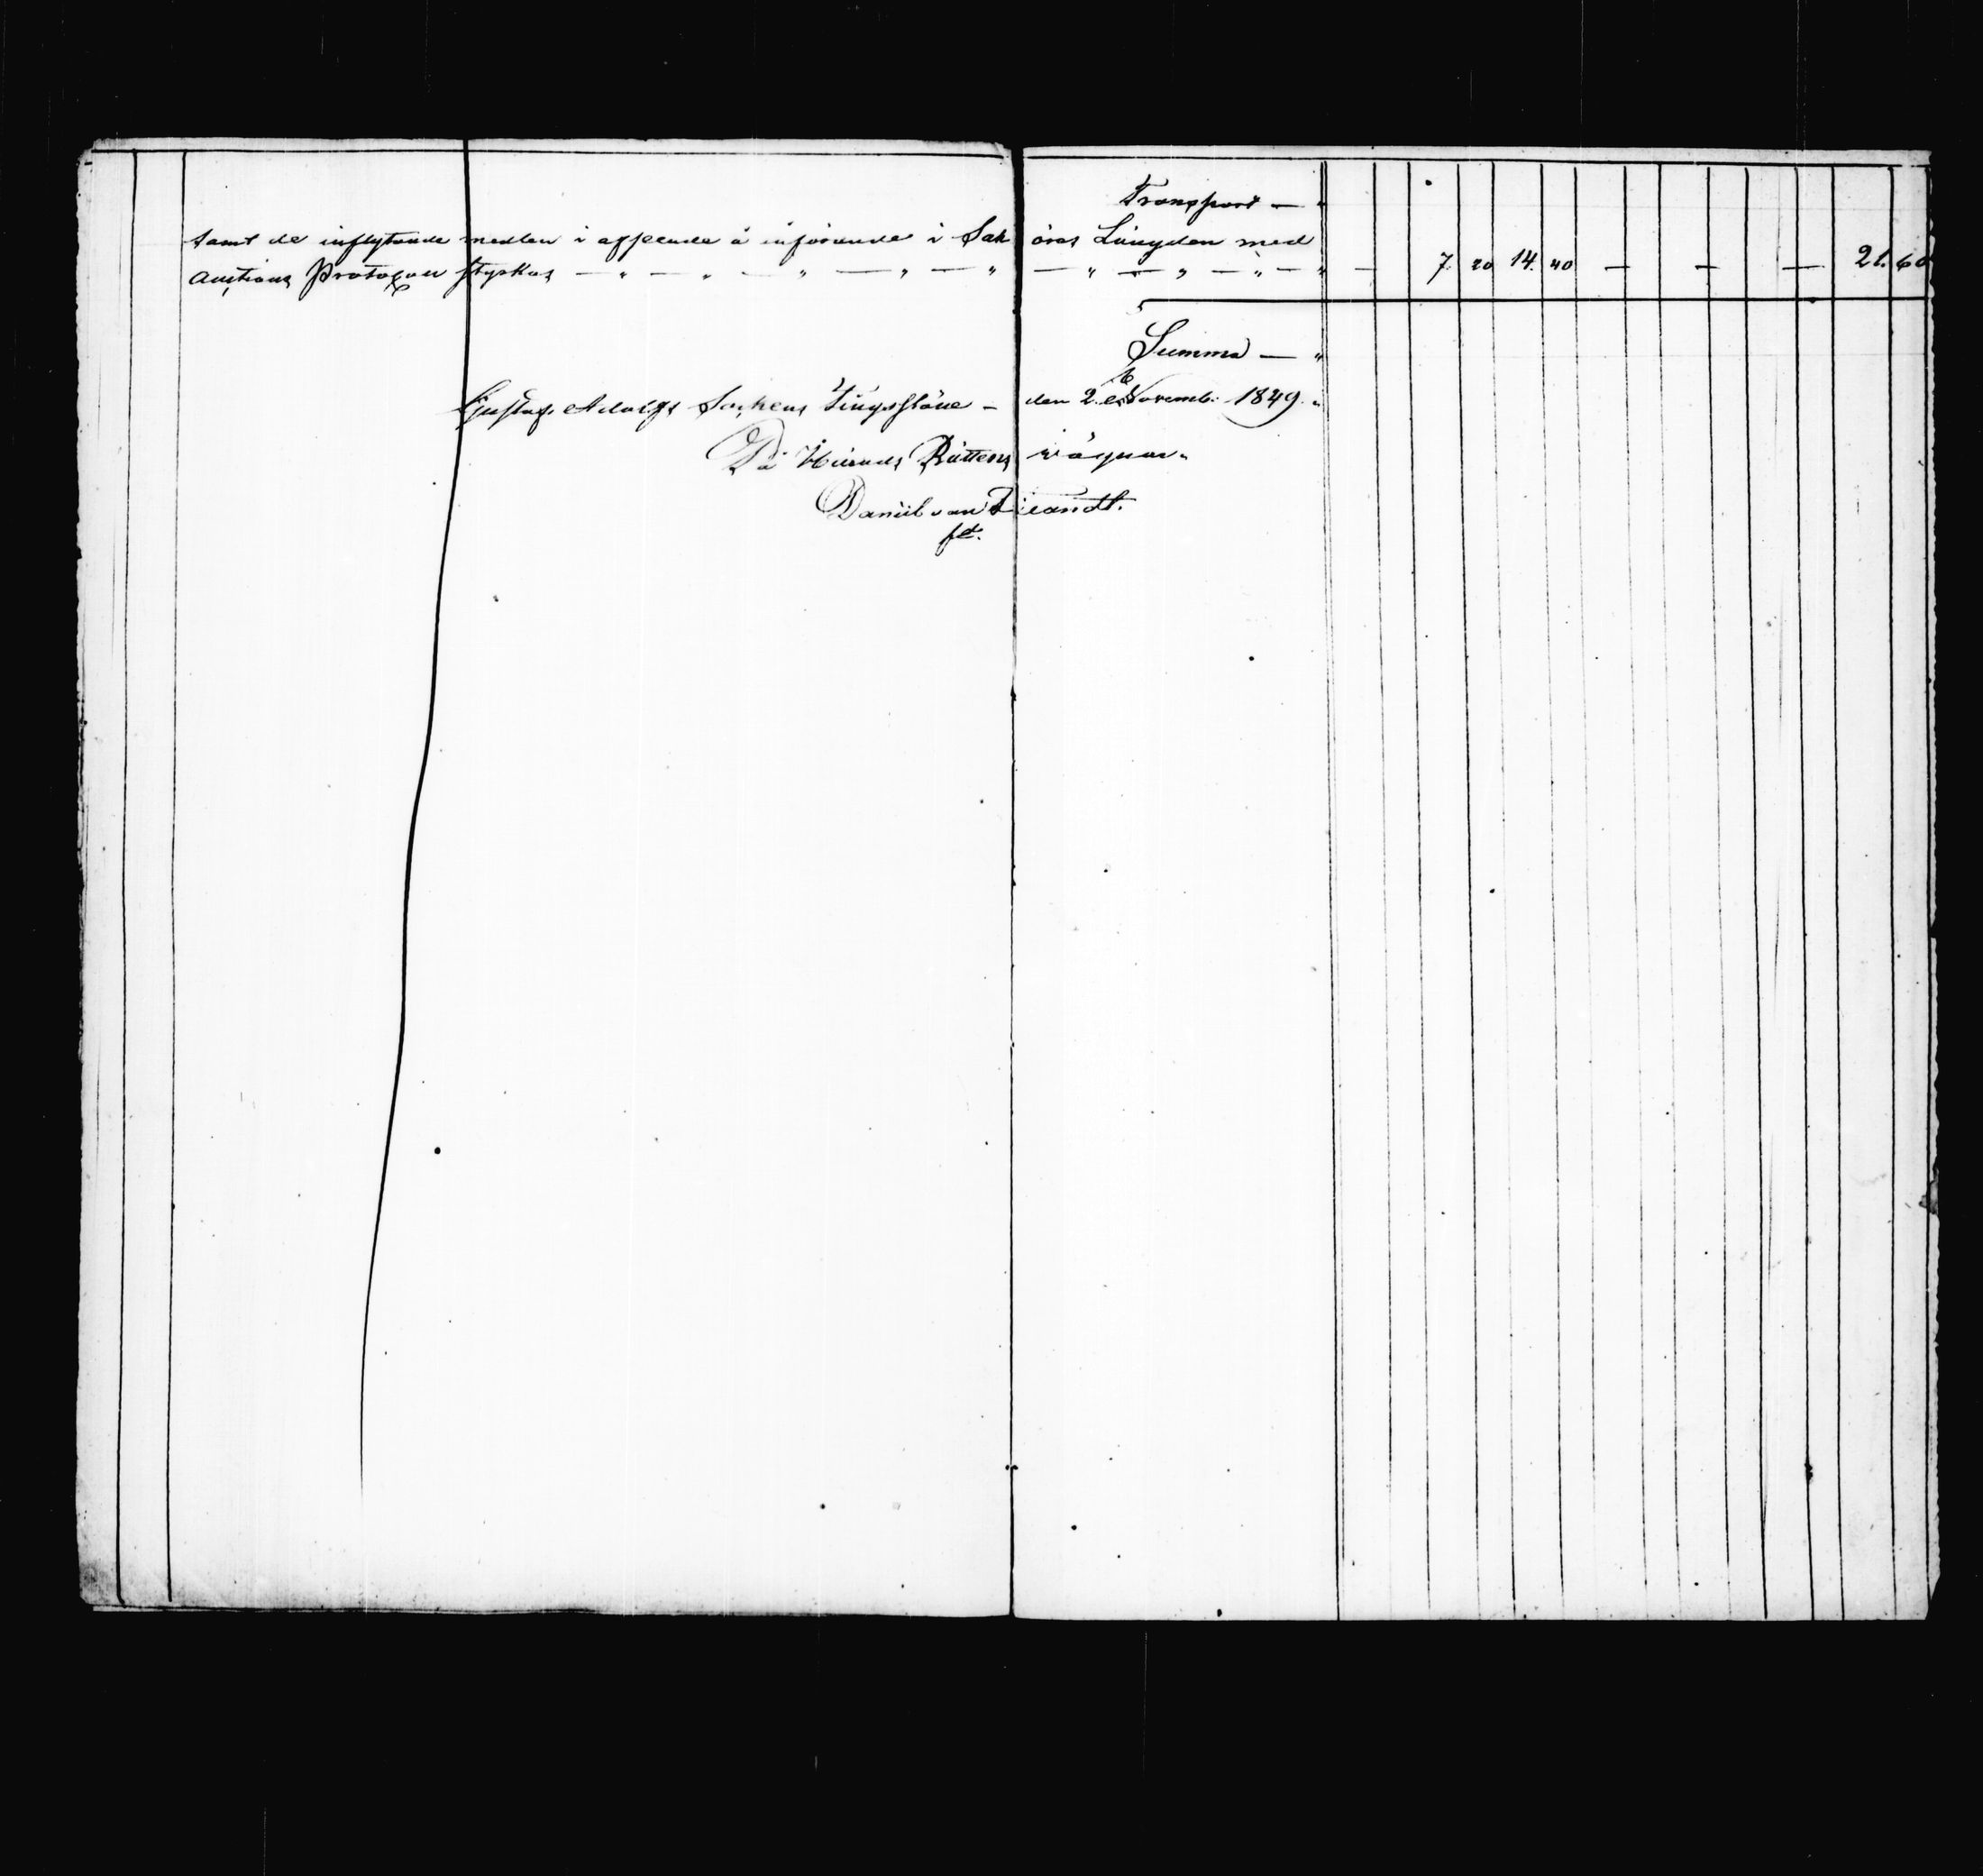 Transport —
samt de inflytande medlen i afseende å införande i Sak öres Längden med
Auctions Protocoll styrkas — " — " — " — " — " — " — " — " — " — 7. 20 14. 40 — — — 21. 60
Summa — "
Gustaf Adolfs Sockens Tingsställe den 2 Novemb. 1849.
På Härads Rättens vägnar.
Daniel von